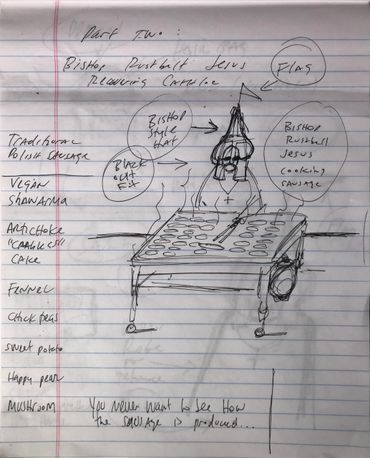 Part Two:
Bishop Rustbelt Jesus
Flag
Bishop
Style
Hat
Bishop
Rustbelt
Jesus
cooking
sausage
Black
out
Fit
Traditional
Polish Sausage
Vegan
Shawarma
Artichoke
Cake
Fennel
Chick peas
Sweet potato
Happy pear
Mushroom
You never want to see how
the sausage is produced...